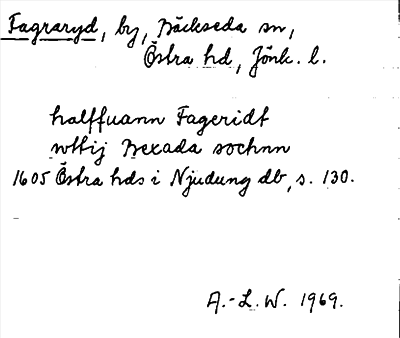 Fagraryd, by, Bäckseda sn,
Östra hd, Jönk. l.
halffuann Fageridt
wttij Bexada sochnn
1605 Östra hds i Njudung db, s. 130.
A.-L.W. 1969.